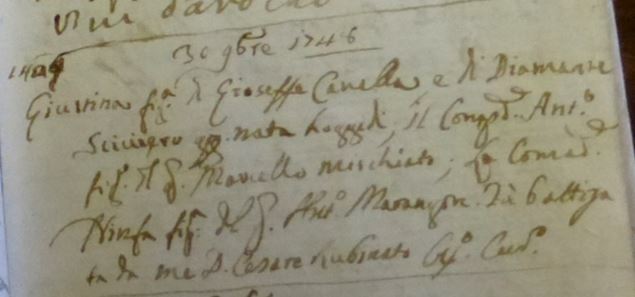 30 9bre 1746
Giustina fig.a di Gioseffo Canella, e di Diamante
Sciviero gg. nata hoggidì, il Comp.e Ant.o
fig.o del q. Marcello Mischiato; la Comad.e
Ninfa fig.a del q. Ant.o Marangon. Fù battiza
ta da me D. Cesare Rubinato